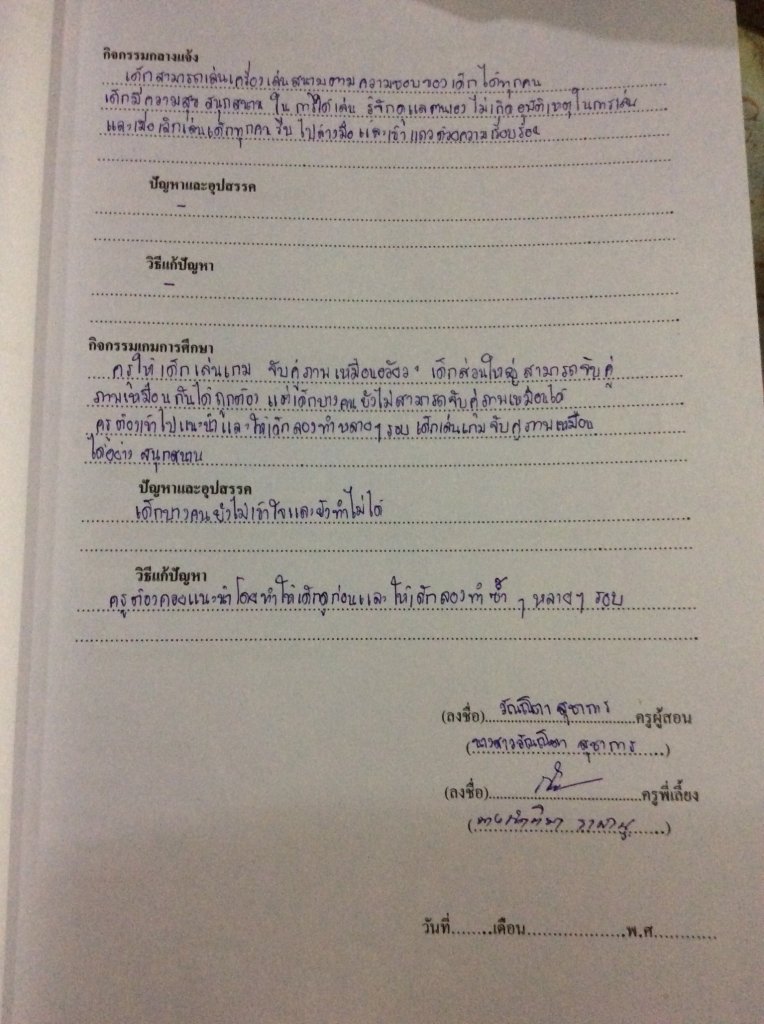 กิจกรรมกลางแจ้ง
เด็กสามารถเล่นเครื่องเล่นสนามตามความชอบของเด็กได้ทุกคน
เด็กมีความสุข สนุกสนาน ในการได้เล่น รู้จักดูแลตนเอง ไม่เกิดอุบัติเหตุในการเล่น
และเมื่อเลิกเล่นเด็กทุกคนรีบไปล้างมือ และเข้าแถวด้วยความเรียบร้อย
ปัญหาและอุปสรรค
-
วิธีแก้ปัญหา
-
กิจกรรมเกมการศึกษา
ครูให้เด็กเล่นเกม จับคู่ภาพเหมือน เด็กส่วนใหญ่สามารถจับคู่
ภาพเหมือนกันได้ถูกต้อง แต่เด็กบางคนยังไม่สามารถจับคู่ภาพเหมือนได้
ครูต้องเข้าไปแนะนำและให้เด็กลองทำหลายๆ รอบ เด็กเล่นเกมจับคู่ภาพเหมือน
ได้อย่างสนุกสนาน
ปัญหาและอุปสรรค
เด็กบางคนยังไม่เข้าใจและยังทำไม่ได้
วิธีแก้ปัญหา
ครูต้องคอยแนะนำโดยทำให้เด็กดูก่อนและให้เด็กลองทำซ้ำๆ หลายๆ รอบ
(ลงชื่อ) สุชาการ ครูผู้สอน
(นางสาว สุชาการ)
(ลงชื่อ) ครูพี่เลี้ยง
วันที่........เดือน....................พ.ศ.............